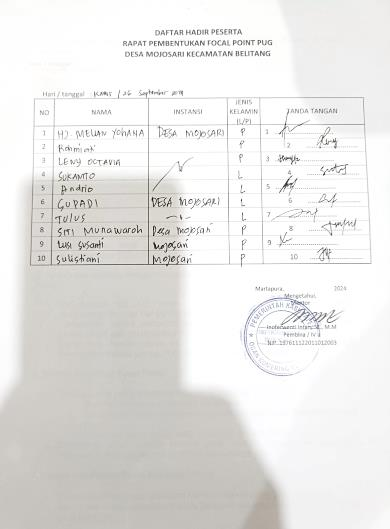 DAFTAR HADIR PESERTA
RAPAT PEMBENTUKAN FOCAL POINT PUG
DESA MOJOSARI KECAMATAN BELITANG
Hari / tanggal Kamis / 26 September
NO NAMA INSTANSI JENIS KELAMIN (L/P) TANDA TANGAN
1 HJ. MELIAN YOHANA DESA MOJOSARI P 1
2 Rahmiati P 2
3 LENY OCTAVIA P 3
4 SUKANTO L 4
5 Andrio L 5
6 GUPADI DESA MOJOSARI L 6
7 TULUS -"- L 7
8 SITI Munawaroh Desa mojosari P 8
9 Lusi Susanti Mojosari P 9
10 Sulistiani Mojosari P 10
Martapura, 2024
Mengetahui,
Mentor
PEMERINTAH KAB
OGAN KOMERING
M.M
Pembina / IV a
NIP. 197611122011012003